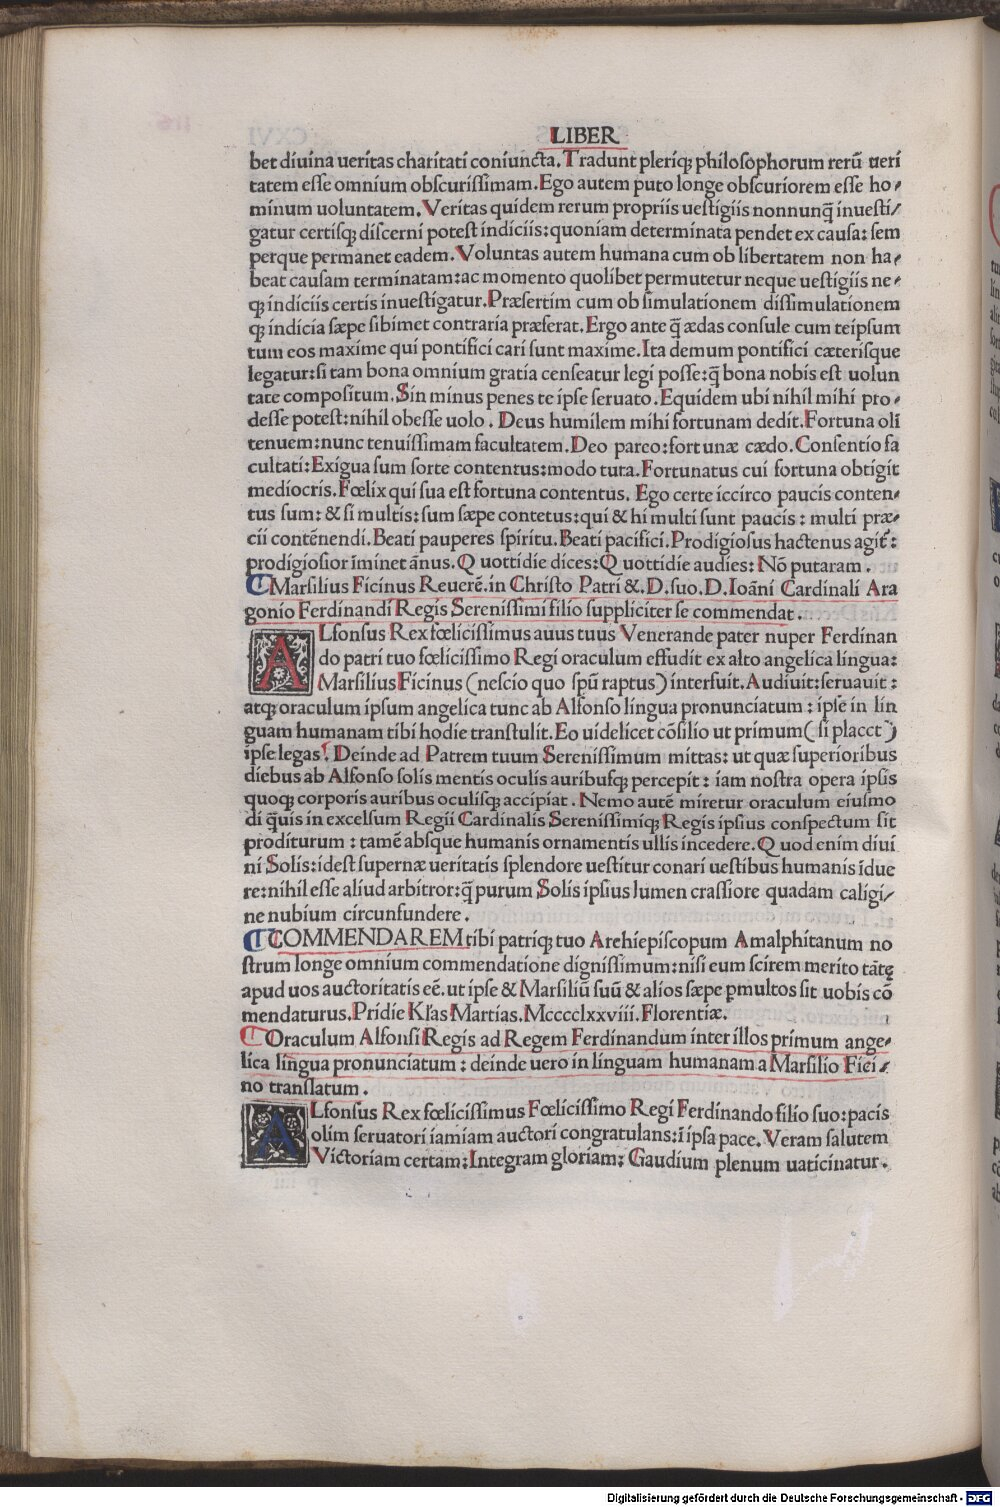 LIBER
bet diuina ueritas charitati coniuncta. Tradunt pleriqꝫ philosophorum rerū ueri
tatem esse omnium obscurissimam. Ego autem puto longe obscuriorem esse ho⸗
minum uoluntatem. Veritas quidem rerum propriis uestigiis nonnunq̄ inuesti/
gatur certisqꝫ discerni potest indiciis: quoniam determinata pendet ex causa: sem
perque permanet eadem. Voluntas autem humana cum ob libertatem non ha⸗
beat causam terminatam: ac momento quolibet permutetur neque uestigiis ne⸗
qꝫ indiciis certis inuestigatur. Præsertim cum ob simulationem dissimulationem
qꝫ indicia sæpe sibimet contraria præferat. Ergo ante q̄ ædas consule cum teipsum
tum eos maxime qui pontifici cari sunt maxime. Ita demum pontifici cæterisque
legatur: si tam bona omnium gratia censeatur legi posse: q̄ bona nobis est uolun
tate compositum. Sin minus penes te ipse seruato. Equidem ubi nihil mihi pro⸗
desse potest: nihil obesse uolo. Deus humilem mihi fortunam dedit. Fortuna oli
tenuem: nunc tenuissimam facultatem. Deo pareo: fortunæ cædo. Consentio fa
cultati: Exigua sum sorte contentus: modo tuta. Fortunatus cui fortuna obtigit
mediocris. Fœlix qui sua est fortuna contentus. Ego certe iccirco paucis conten⸗
tus sum: & si multis: sum sæpe contetus: qui & hi multi sunt paucis: multi præ⸗
cii contēnendi. Beati pauperes spiritu. Beati pacifici. Prodigiosus hactenus agit̄:
prodigiosior īminet ānus. Quottidie dices: Quottidie audies: Nō putaram.
Marsilius Ficinus Reuerē. in Christo Patri &. D. suo. D. Ioāni Cardinali Ara
gonio Ferdinandi Regis Serenissimi filio suppliciter se commendat.
ALfonsus Rex fœlicissimus auus tuus Venerande pater nuper Ferdinan
do patri tuo fœlicissimo Regi oraculum effudit ex alto angelica lingua:
Marsilius Ficinus (nescio quo spū raptus) interfuit. Audiuit: seruauit:
atqꝫ oraculum ipsum angelica tunc ab Alfonso lingua pronunciatum: ipse in lin
guam humanam tibi hodie transtulit. Eo uidelicet cōsilio ut primum (si placet)
ipse legas. Deinde ad Patrem tuum Serenissimum mittas: ut quæ superioribus
diebus ab Alfonso solis mentis oculis auribusqꝫ percepit: iam nostra opera ipsis
quoqꝫ corporis auribus oculisqꝫ accipiat. Nemo autē miretur oraculum eiusmo
di q̄uis in excelsum Regii Cardinalis Serenissimiqꝫ Regis ipsius conspectum sit
proditurum: tamē absque humanis ornamentis ullis incedere. Quod enim diui
ni Solis: idest supernæ ueritatis splendore uestitur conari uestibus humanis īdue
re: nihil esse aliud arbitror: q̄ purum Solis ipsius lumen crassiore quadam caligi/
ne nubium circunfundere.
COMMENDAREM tibi patriqꝫ tuo Archiepiscopum Amalphitanum no
strum longe omnium commendatione dignissimum: nisi eum scirem merito tātę
apud uos auctoritatis eē. ut ipse & Marsiliū suū & alios sæpe ꝑmultos sit uobis cō
mendaturus. Pridie Kl'as Martias. Mcccclxxviii. Florentiæ.
Oraculum Alfonsi Regis ad Regem Ferdinandum inter illos primum ange⸗
lica lingua pronunciatum: deinde uero in linguam humanam a Marsilio Fici⸗
no translatum.
ALfonsus Rex fœlicissimus Fœlicissimo Regi Ferdinando filio suo: pacis
olim seruatori iamiam auctori congratulans: ī ipsa pace. Veram salutem
Victoriam certam: Integram gloriam: Gaudium plenum uaticinatur.
Digitalisierung gefördert durch die Deutsche Forschungsgemeinschaft - DFG